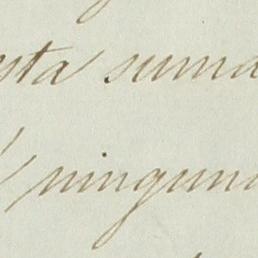 sta suma
ninguna